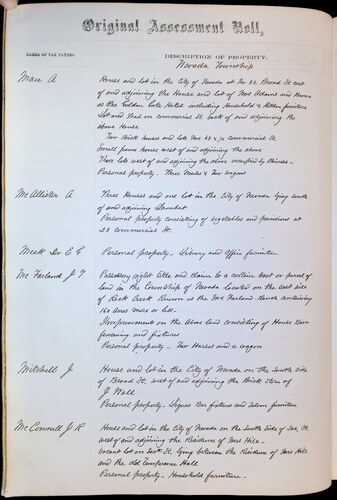 Original Assessment Roll,
NAMES OF TAX PAYERS.
DESCRIPTION OF PROPERTY.
Nevada Township
Marc A
House and lot in the City of Nevada at No 82 Broad St east
of and adjoining the House and lot of Mrs Adams and known
as the Golden Gate Hotel including Household & Kitchen furniture
Lot and Shed on commercial St back of and adjoining the
above House
Two Brick houses and lots Nos 68 & 70 commercial St.
Small frame houses west of and adjoining the above
Three lots west of and adjoining the above occupied by Chinese
Personal property – Three Mules & Two wagons
McAllister A
Three Houses and one lot in the City of Nevada lying south
of and adjoining Lambert
Personal property consisting of vegetables and provisions at
25 commercial St.
Meek Dr E G
Personal property – Library and Office furniture
McFarland J T
Possessory right title and claim to a certain tract or parcel of
land in the Township of Nevada located on the east side
of Rock Creek known as the McFarland Ranch containing
160 acres more or less –
Improvements on the above land consisting of House Barn
fencing and fixtures
Personal property – Two Horses and a wagon
Mitchell J.
House and lot in the City of Nevada on the South side
of Broad St. west of and adjoining the Brick store of
J Wall
Personal property – Liquors Bar fixtures and Saloon furniture
McConnell J R
House and lot in the City of Nevada on the South Side of St,
west of and adjoining the Residence of Mrs Hill –
vacant lot on St lying between the Residence of Mrs Hill
and the old Temperance Hall
Personal property – Household furniture –